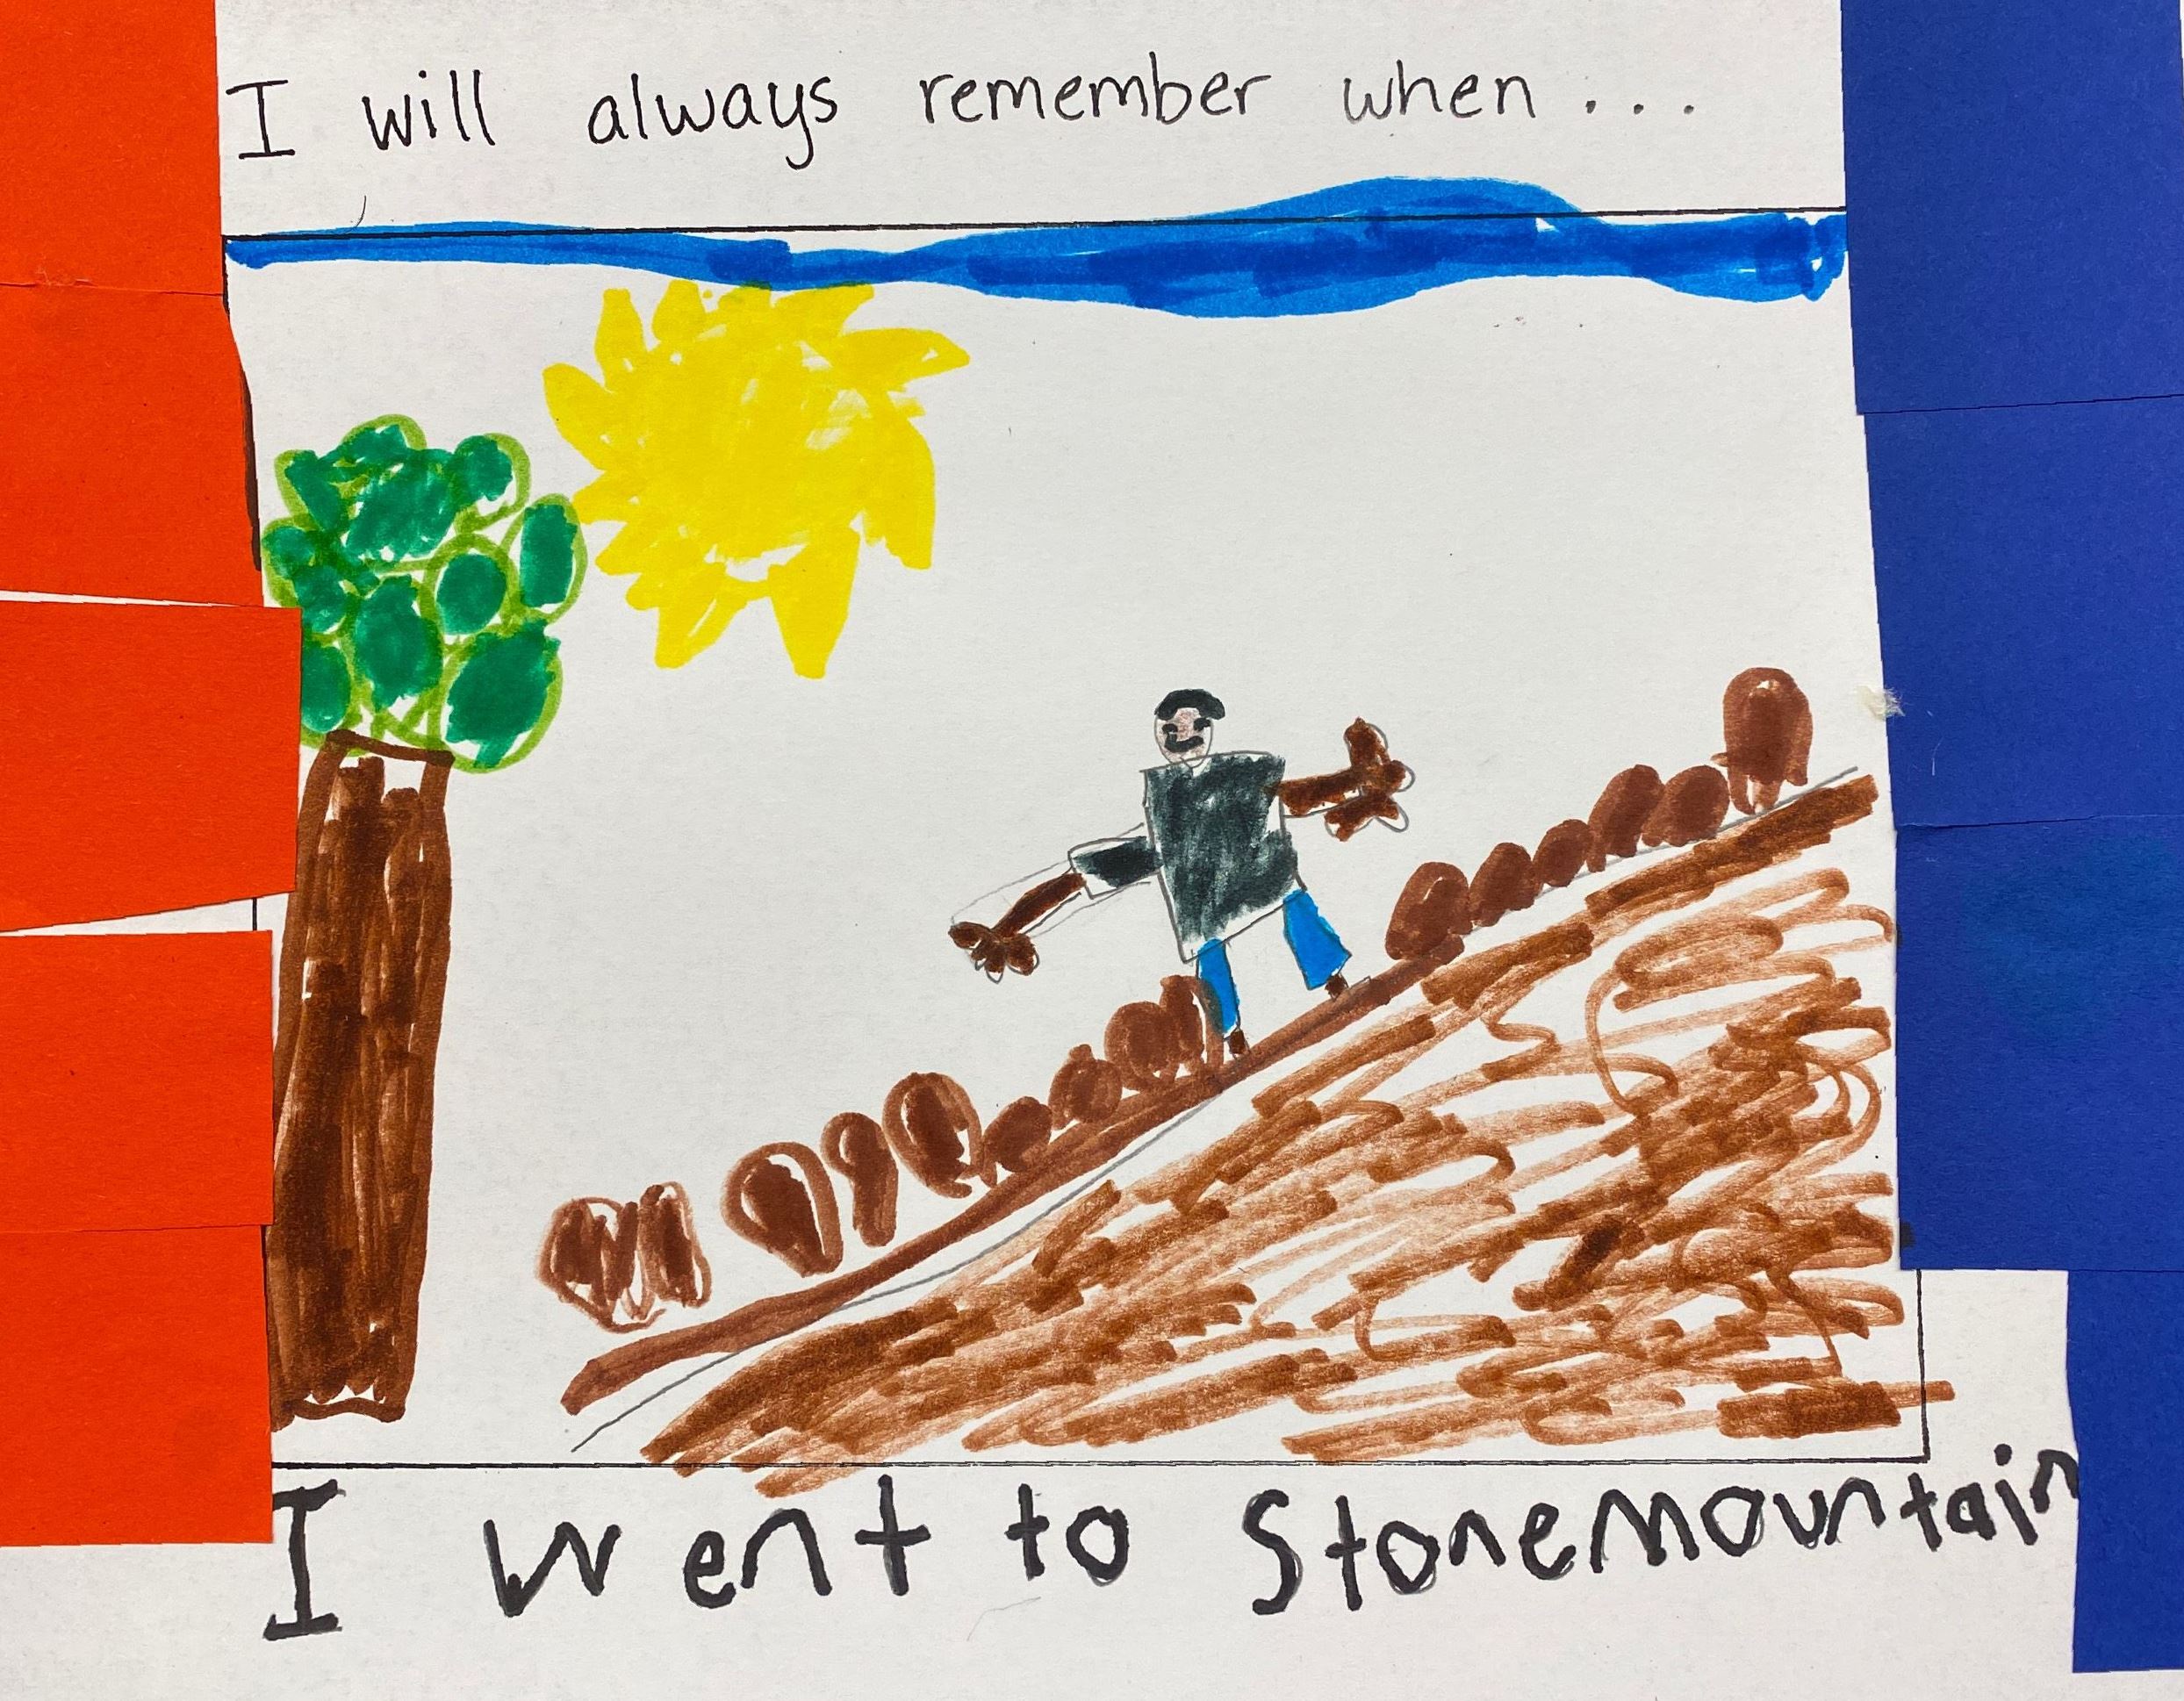 I will always remember when...
I went to Stonemountain